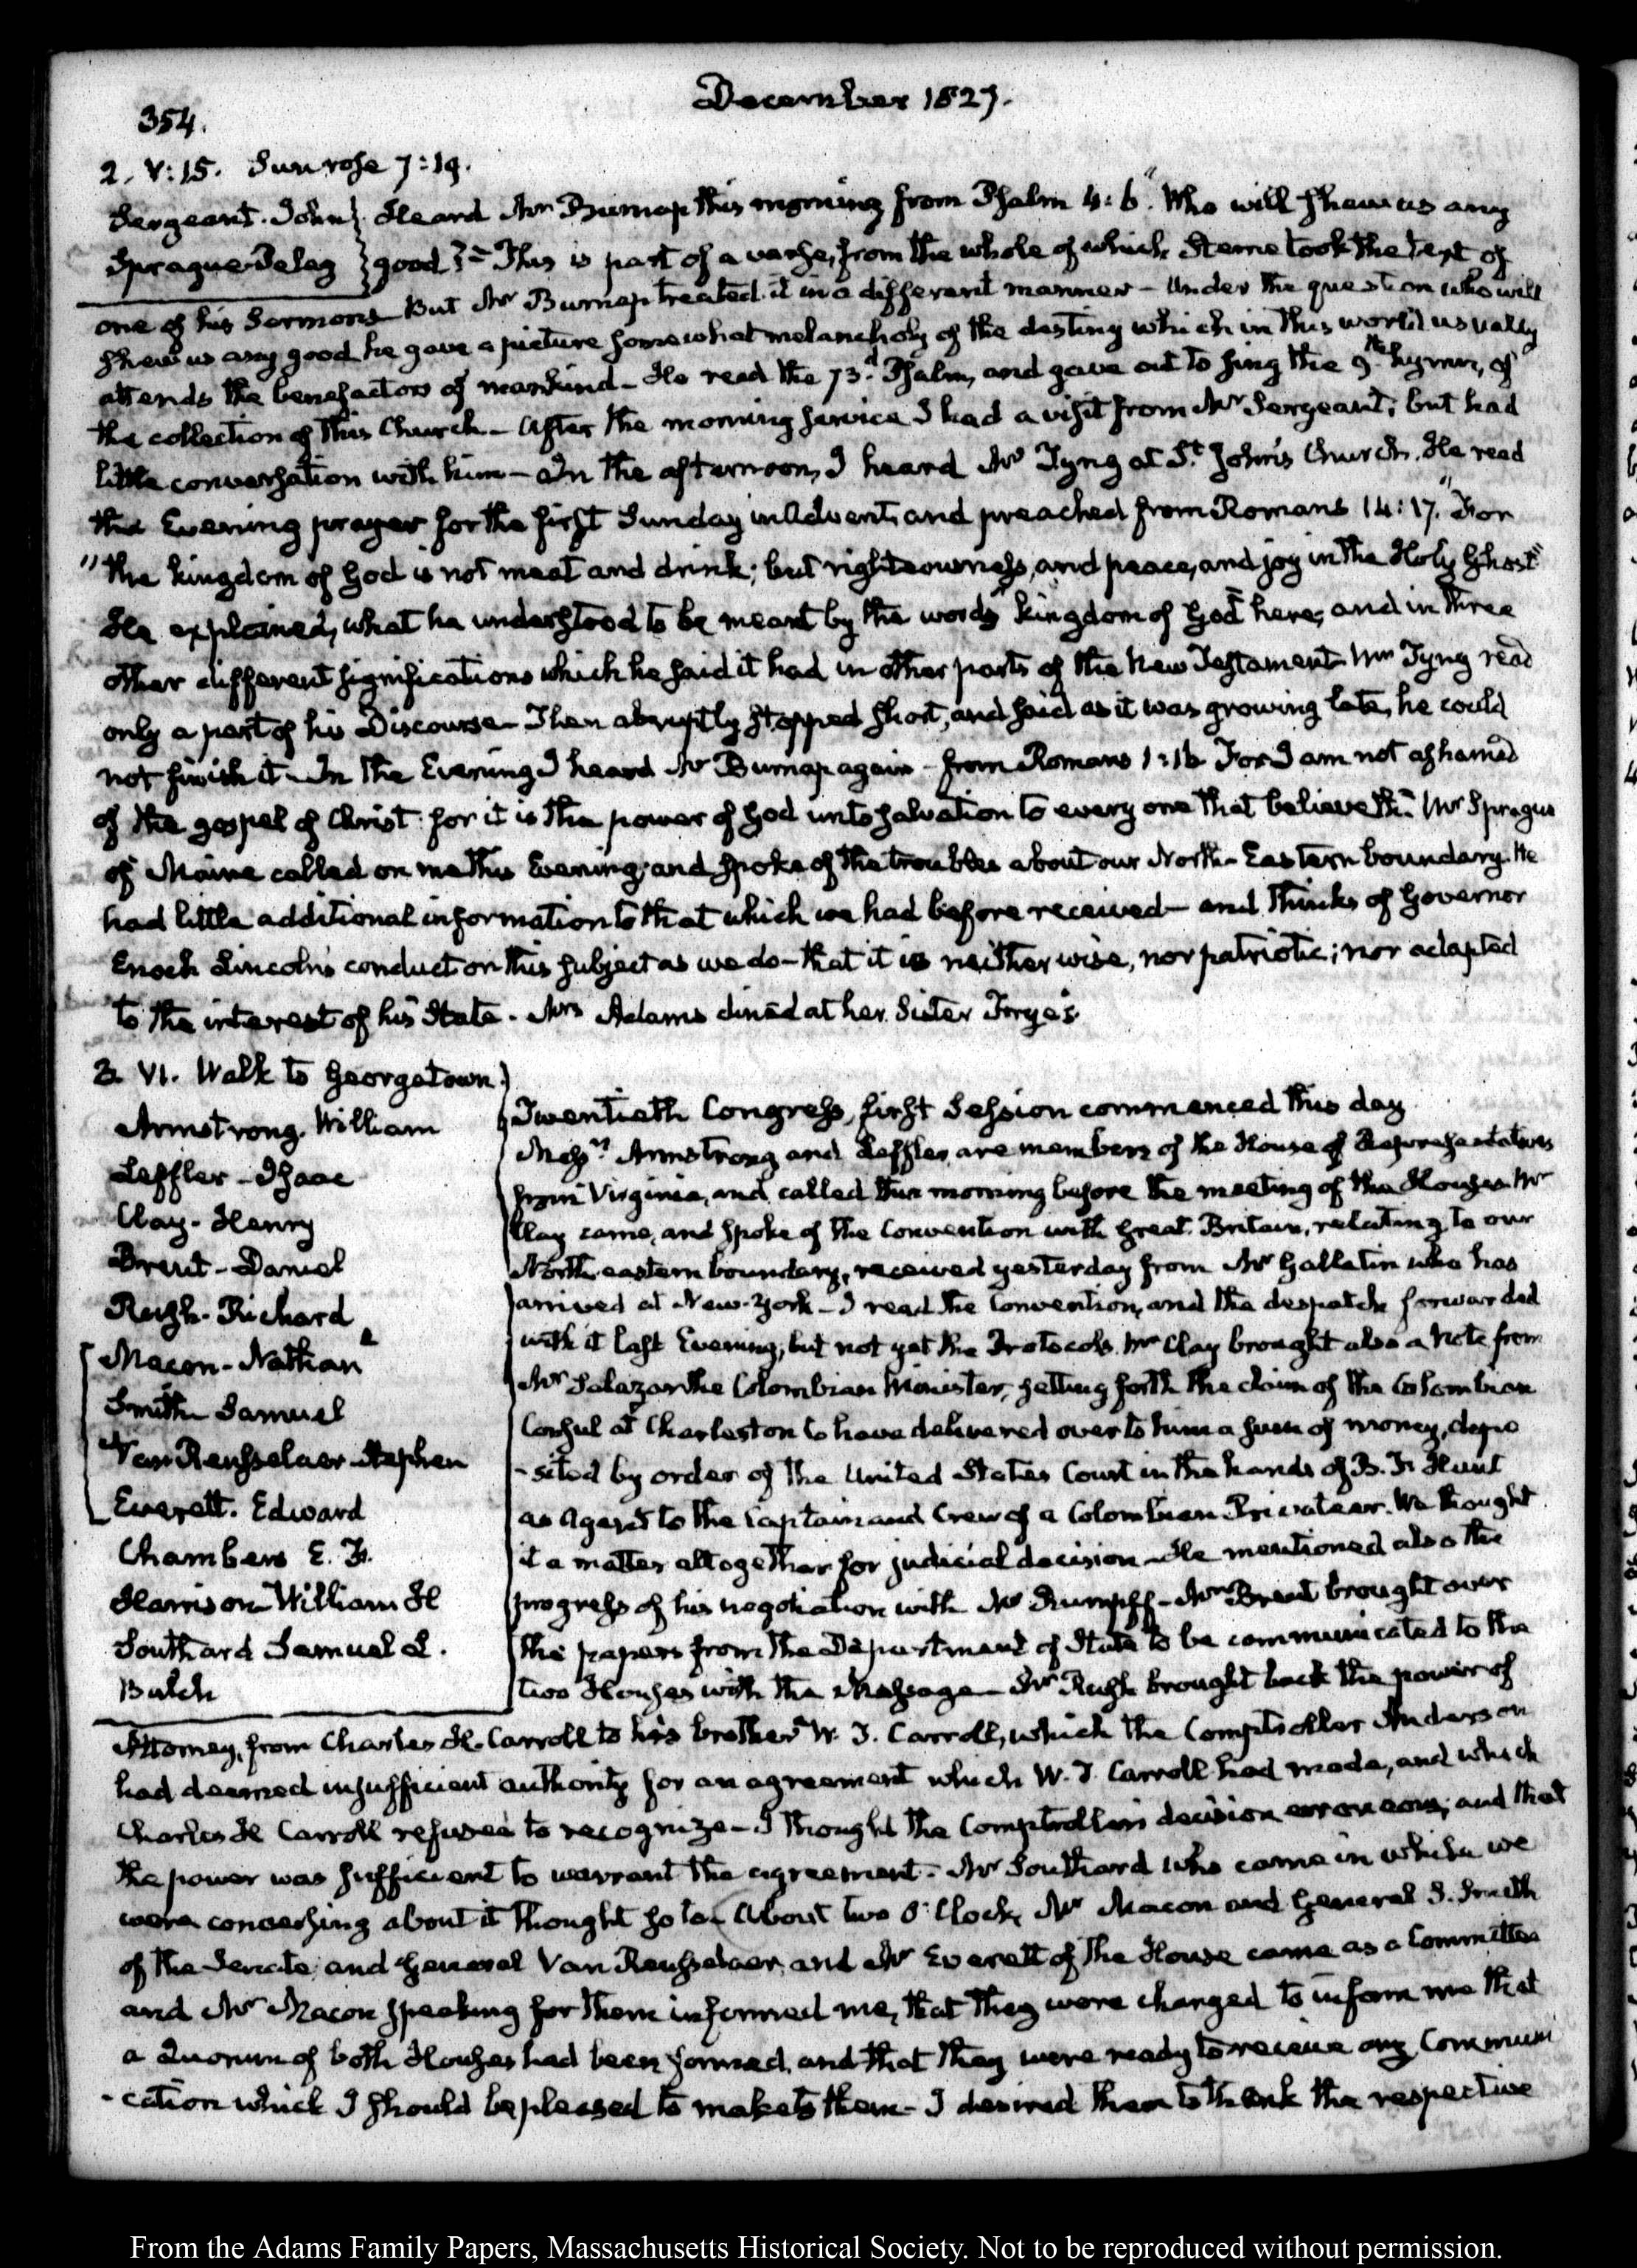 December 1827.
354.
2. V:15. Sun rose 7:19.
Sergeant. John Heard Mr Burnap this morning from Psalm 4:6. "Who will shew us any
Sprague Peleg good?" This is part of a verse, from the whole of which Sterne took the text of
one of his Sermons But Mr Burnap treated it in a different manner - Under the question who will
shew us any good he gave a picture somewhat melancholy of the destiny which in this world usually
attends the benefactors of mankind - He read the 73.d Psalm, and gave out to sing the 9.th hymn, of
the collection of this Church - After the morning service I had a visit from Mr Sergeant; but had
little conversation with him - In the afternoon, I heard Mr Tyng at St. John's Church. He read
the Evening prayer for the first Sunday in Advent, and preached from Romans 14:17. "For
"the kingdom of God is not meat and drink; but righteousness, and peace, and joy in the Holy Ghost"
He explained, what he understood to be meant by the words kingdom of God here, and in three
other different significations which he said it had in other parts of the New Testament Mr Tyng read
only a part of his Discourse - Then abruptly stopped short, and said as it was growing late, he could
not finish it - In the Evening I heard Mr Burnap again - from Romans 1:16 For I am not ashamed
of the gospel of Christ: for it is the power of God unto salvation to every one that believeth." Mr Sprague
of Maine called on me this Evening, and spoke of the troubles about our North-Eastern boundary. He
had little additional information to that which we had before received - and thinks of Governor
Enoch Lincoln's conduct on this subject as we do - that it is neither wise, nor patriotic; nor adapted
to the interest of his State. Mrs Adams dined at her Sister Frye's.
3. VI. Walk to Georgetown.
Armstrong. William
Leffler - Isaac
Clay - Henry
Brent - Daniel
Rush - Richard
Macon - Nathanl
Smith Samuel
Van Rensselaer Stephen
Everett. Edward
Chambers E. F.
Harrison William H
Southard Samuel L.
Balch
Twentieth Congress, first Session commenced this day
Messrs Armstrong and Leffler are members of the House of Representatives
from Virginia, and called this morning before the meeting of the Houses. Mr
Clay came, and spoke of the Convention with Great Britain, relating to our
North eastern boundary, received yesterday from Mr Gallatin who has
arrived at New-York - I read the Convention, and the despatch forwarded
with it last Evening, but not yet the Protocols. Mr Clay brought also a Note from
Mr Salazar the Colombian Minister, setting forth the claim of the Colombian
Consul at Charleston to have delivered over to him a sum of money, depo
-sited by order of the United States Court in the hands of B. F. Hunt
as Agent to the Captain and Crew of a Colombian Privateer. We thought
it a matter altogether for judicial decision - He mentioned also the
progress of his negotiation with Mr Rumpff - Mr Brent brought over
the papers from the Department of State to be communicated to the
two Houses with the Message - Mr Rush brought back the power of
Attorney, from Charles H. Carroll to his brother W. T. Carroll, which the Comptroller Anderson
had deemed insufficient authority for an agreement which W. T. Carroll had made, and which
Charles H Carroll refused to recognize - I thought the Comptroller's decision erroneous; and that
the power was sufficient to warrant the agreement. Mr Southard who came in while we
were conversing about it thought so too. About two O'Clock, Mr Macon and General S. Smith
of the Senate, and General Van Rensselaer, and Mr Everett of the House came as a Committee
and Mr Macon speaking for them informed me, that they were charged to inform me that
a Quorum of both Houses had been formed, and that they were ready to receive any Communi
-cation which I should be pleased to make to them - I desired them to thank the respective
From the Adams Family Papers, Massachusetts Historical Society. Not to be reproduced without permission.